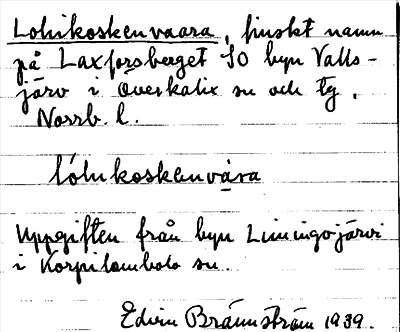 Lohikoskenvaara, finskt namn
på Laxforsberget SO byn Valls-
järv i Överkalix sn och tg,
Norrb. l.
lóhikoskenvāra
Uppgiften från byn Liiningojärvi
i Korpilombolo sn.
Edvin Brännström 1939.